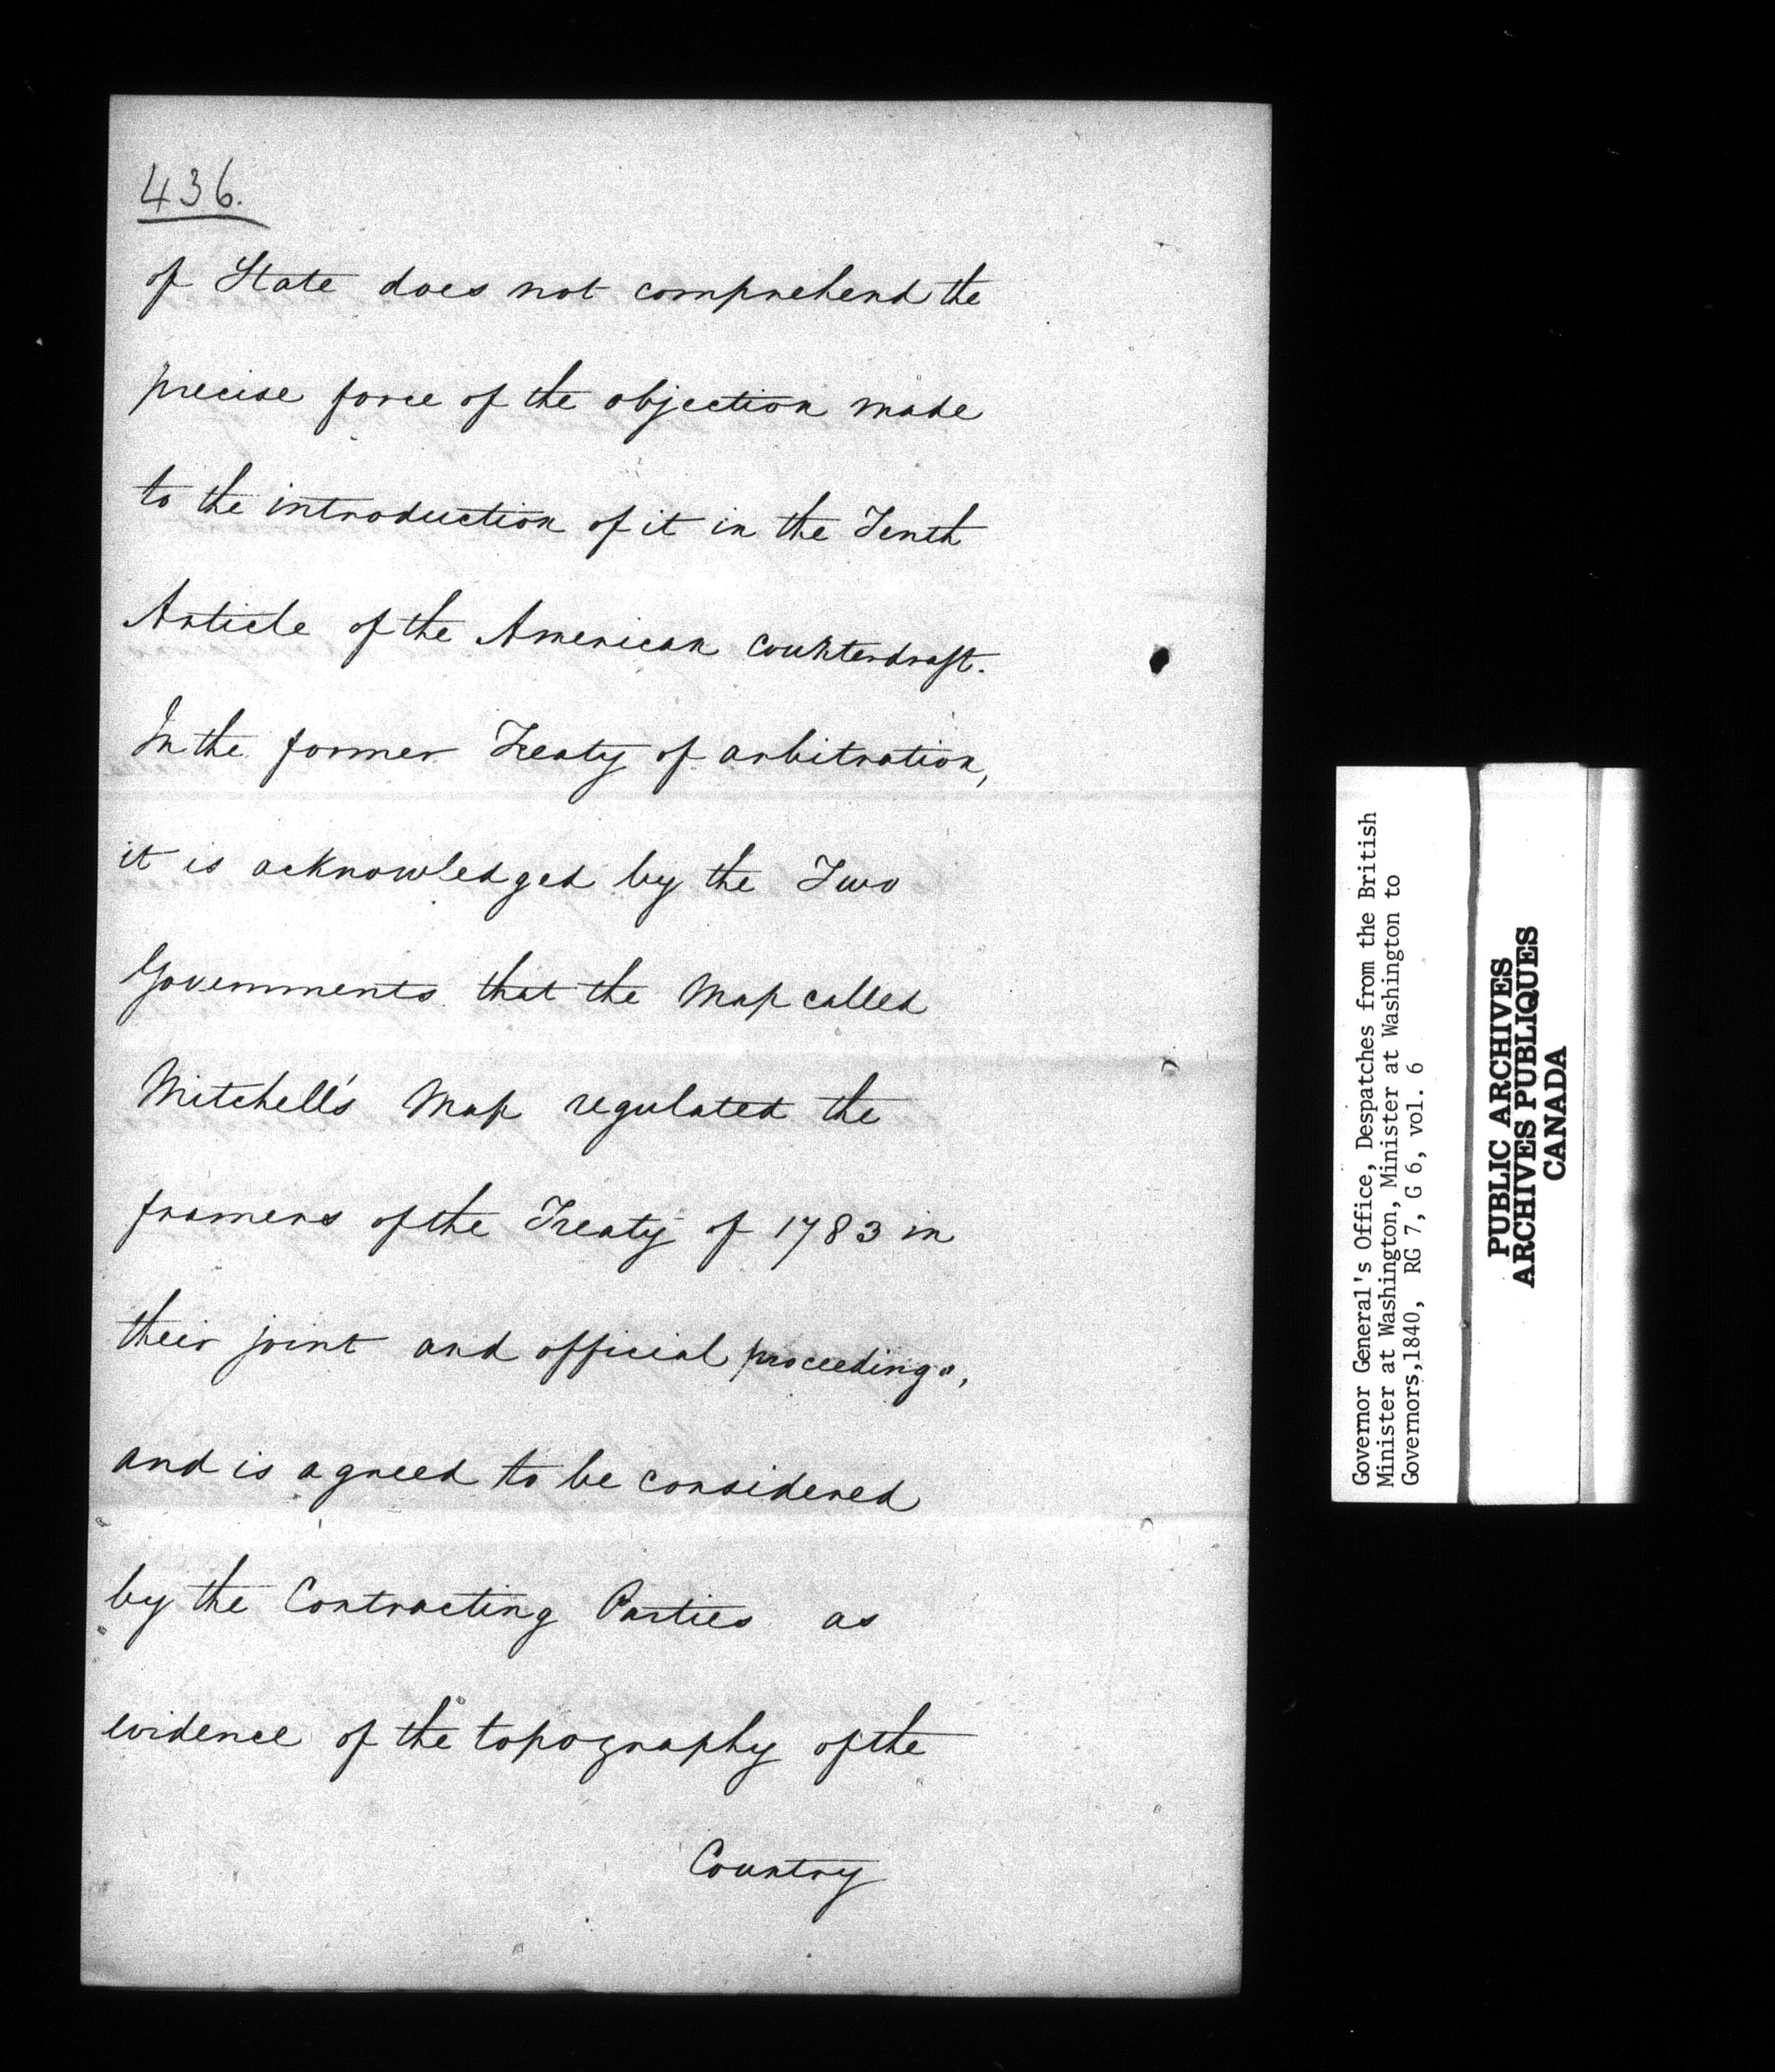 436.
of State does not comprehend the
precise force of the objection made
to the introduction of it in the Tenth
Article of the American Counterdraft.
In the former Treaty of arbitration,
it is acknowledged by the Two
Governments that the Map called
Mitchell's Map regulated the
framers of the Treaty of 1783 in
their joint and official proceedings,
and is agreed to be considered
by the Contracting Parties as
evidence of the topography of the
Country
Governor General's Office, Despatches from the British
Minister at Washington, Minister at Washington to
Governors,1840, RG 7, G 6, vol. 6
PUBLIC ARCHIVES
ARCHIVES PUBLIQUES
CANADA